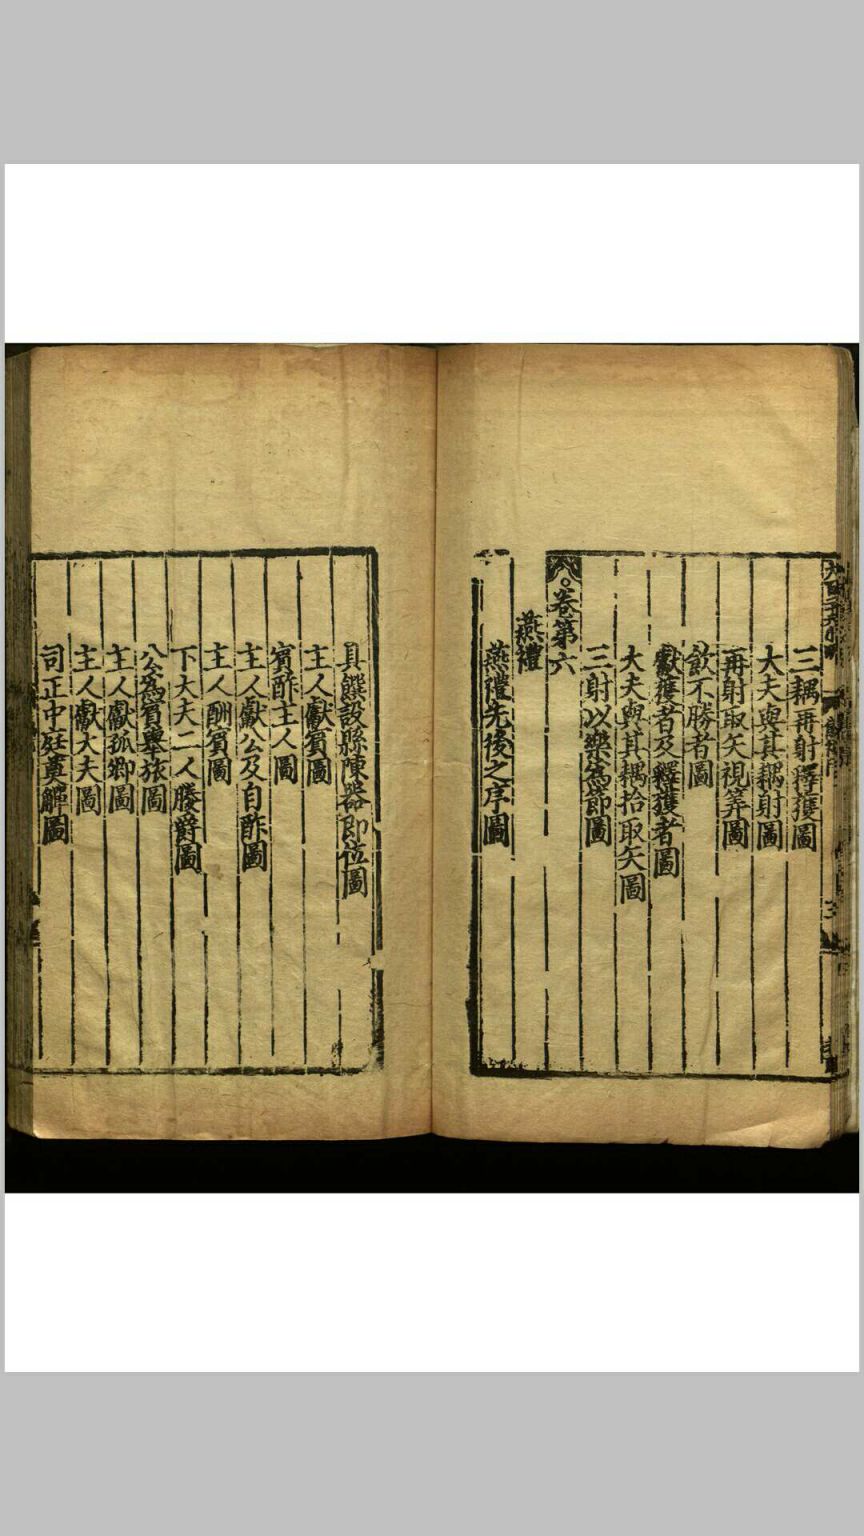 三耦再射釋獲圖
大夫與其耦射圖
再射取矢視筭圖
飲不勝者圖
獻獲者及釋獲者圖
大夫與其耦拾取矢圖
三射以樂為節圖
卷第六
燕禮
燕禮先後之序圖
具饌設縣陳器即位圖
主人獻賓圖
賓酢主人圖
主人獻公及自酢圖
主人酬賓圖
下大夫二人媵爵圖
公為賓舉旅圖
主人獻孤卿圖
主人獻大夫圖
司正中庭奠觶圖